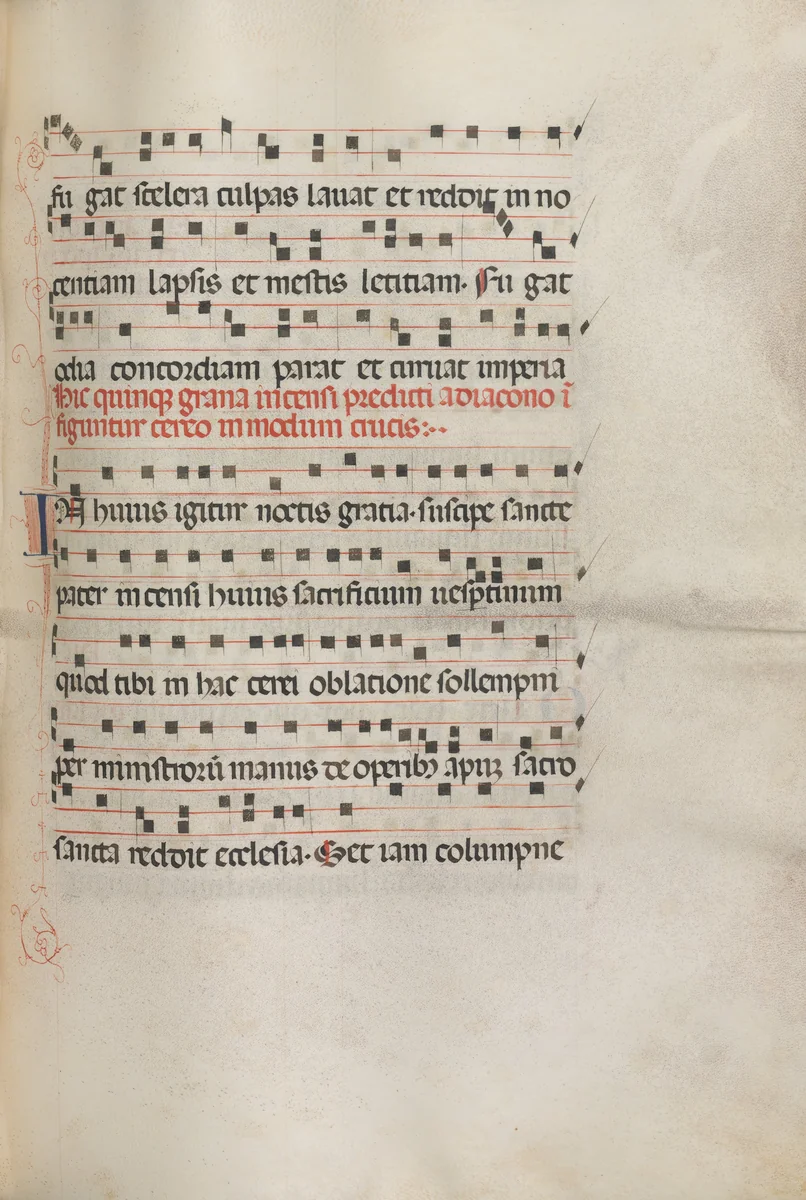 fu gat scelera culpas lauat et reddit in no
centiam lapsis et mestis letitiam. Fu gat
odia concordiam parat et curuat imperia
Hic quinqȝ grana incensi predicti a diacono ĩ
figuntur cereo in modum crucis:..
IN huius igitur noctis gratia. suscipe sancte
pater incensi huius sacrificium uesꝑtinum
quod tibi in hac cerei oblatione sollempni
per ministrorũ manus de operibꝫ apuꝝ sacro
sancta reddit ecclesia. Set iam columpne